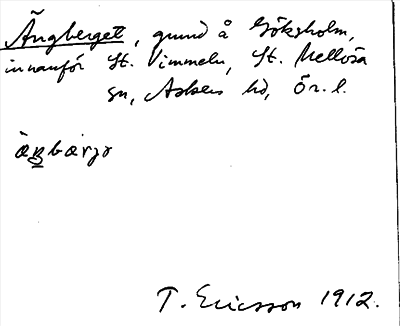 Ängberget, grund å Göksholm,
innanför St. Vimmeln, St. Mellösa
sn, Askers hd, Ör. l.
äŋbærjə
T. Ericsson 1912.